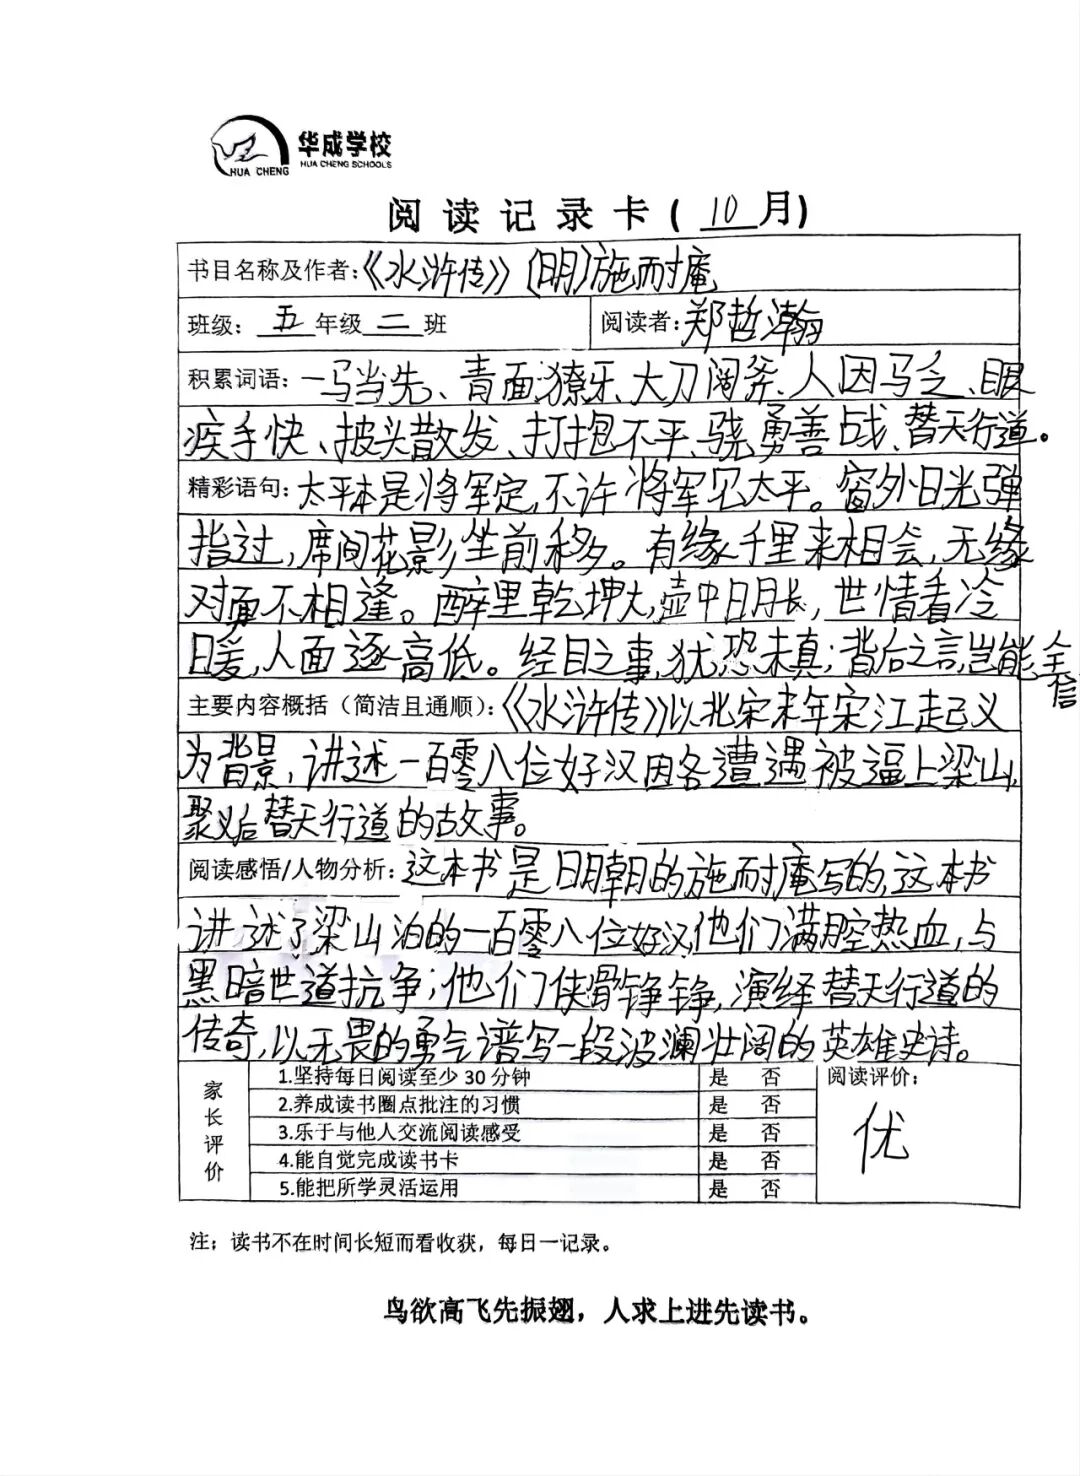 华成学校
HUA CHENG SCHOOLS
HUA CHENG
阅读记录卡(10月)
书目名称及作者:《水浒传》(明)施耐庵
班级:五年级二班 阅读者:郑哲瀚
积累词语:一马当先、青面獠牙、大刀阔斧、人困马乏、眼
疾手快、披头散发、打抱不平、骁勇善战、替天行道。
精彩语句:太平本是将军定,不许将军见太平。窗外日光弹
指过,席间花影坐前移。有缘千里来相会,无缘
对面不相逢。醉里乾坤大,壶中日月长,世情看冷
暖,人面逐高低。经目之事,犹恐未真;背后之言,岂能全
信
主要内容概括(简洁且通顺):《水浒传》以北宋末年宋江起义
为背景,讲述一百零八位好汉因各遭遇被逼上梁山,
聚义后替天行道的故事。
阅读感悟/人物分析:这本书是明朝的施耐庵写的,这本书
讲述了梁山泊的一百零八位好汉,他们满腔热血,与
黑暗世道抗争;他们侠骨铮铮,演绎替天行道的
传奇,以无畏的勇气谱写一段波澜壮阔的英雄史诗。
家长评价
1.坚持每日阅读至少30分钟 是 否
2.养成读书圈点批注的习惯 是 否
3.乐于与他人交流阅读感受 是 否
4.能自觉完成读书卡 是 否
5.能把所学灵活运用 是 否
阅读评价:
优
注：读书不在时间长短而看收获，每日一记录。
鸟欲高飞先振翅，人求上进先读书。